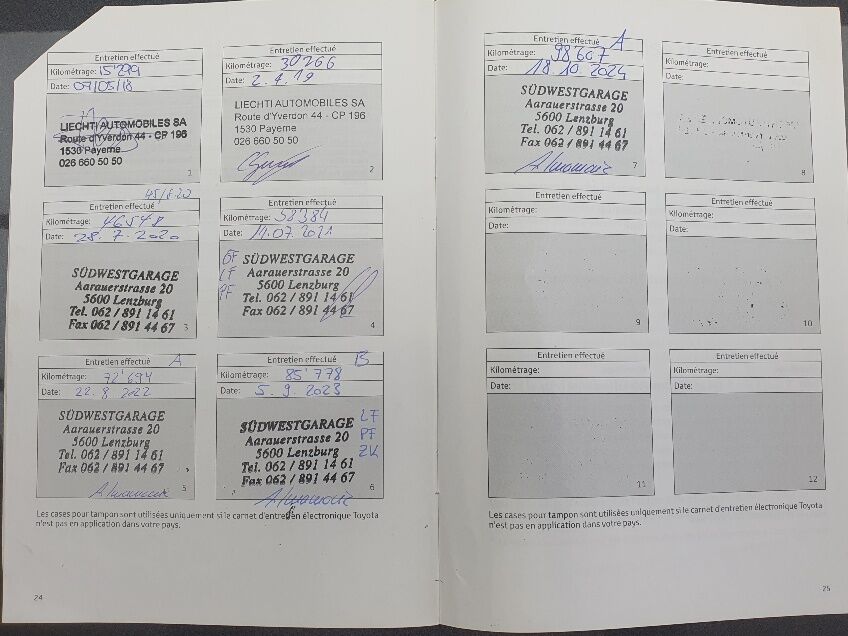 Entretien effectué
Kilométrage: 15'279
Date: 07/05/18
LIECHTI AUTOMOBILES SA
Route d'Yverdon 44 - CP 196
1530 Payerne
026 660 50 50
1
Entretien effectué
Kilométrage: 30266
Date: 2.4.19
LIECHTI AUTOMOBILES SA
Route d'Yverdon 44 - CP 196
1530 Payerne
026 660 50 50
2
Entretien effectué
Kilométrage: 46548
Date: 28.7.2020
SÜDWESTGARAGE
Aarauerstrasse 20
5600 Lenzburg
Tel. 062 / 891 14 61
Fax 062 / 891 44 67
3
Entretien effectué
Kilométrage: 58384
Date: 11.07.2021
GF
LF
PF
SÜDWESTGARAGE
Aarauerstrasse 20
5600 Lenzburg
Tel. 062 / 891 14 61
Fax 062 / 891 44 67
4
Entretien effectué A
Kilométrage: 72'694
Date: 22.8.2022
SÜDWESTGARAGE
Aarauerstrasse 20
5600 Lenzburg
Tel. 062 / 891 14 61
Fax 062 / 891 44 67
5
Entretien effectué B
Kilométrage: 85'778
Date: 5.9.2023
SÜDWESTGARAGE
Aarauerstrasse 20
5600 Lenzburg
Tel. 062 / 891 14 61
Fax 062 / 891 44 67
LF
PF
ZK
6
Les cases pour tampon sont utilisées uniquement si le carnet d'entretien électronique Toyota
n'est pas en application dans votre pays.
24
Entretien effectué A
Kilométrage: 98607
Date: 18.10.2024
SÜDWESTGARAGE
Aarauerstrasse 20
5600 Lenzburg
Tel. 062 / 891 14 61
Fax 062 / 891 44 67
7
Entretien effectué
Kilométrage:
Date:
8
Entretien effectué
Kilométrage:
Date:
9
Entretien effectué
Kilométrage:
Date:
10
Entretien effectué
Kilométrage:
Date:
11
Entretien effectué
Kilométrage:
Date:
12
Les cases pour tampon sont utilisées uniquement si le carnet d'entretien électronique Toyota
n'est pas en application dans votre pays.
25